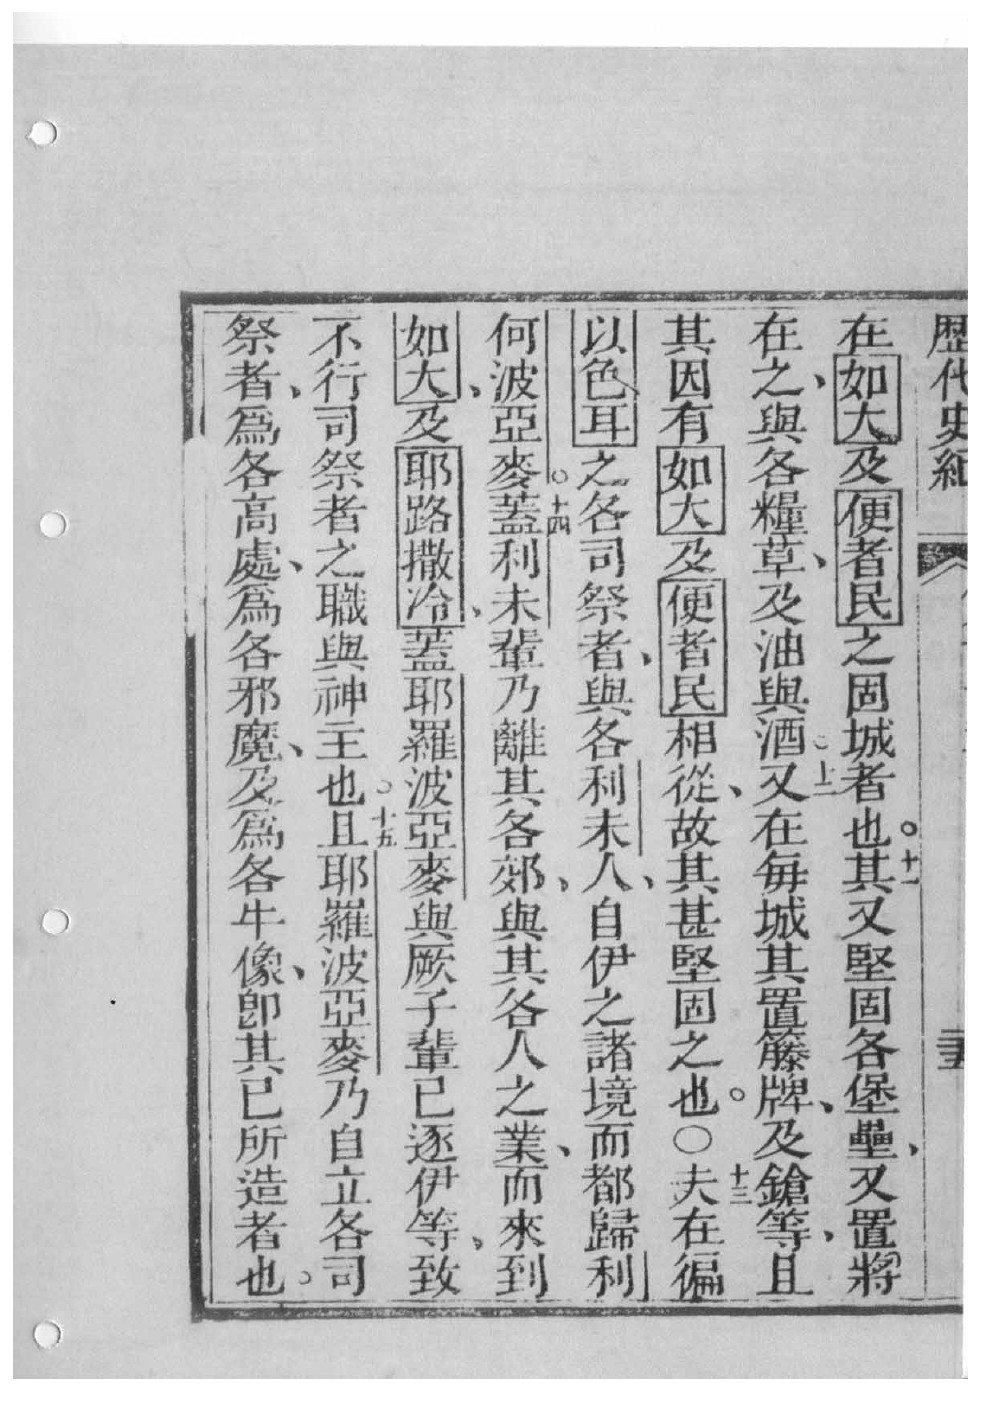 歷代史紀
在如大及便者民之固城者也。十一其又堅固各堡壘、又置將
在之、與各糧草、及油與酒。十二又在每城其置籐牌、及鎗等、且
其因有如大及便者民相從、故其甚堅固之也。○十三夫在徧
以色耳之各司祭者、與各利未人、自伊之諸境而都歸利
何波亞麥。十四蓋利未輩乃離其各郊、與其各人之業、而來到
如大、及耶路撒冷、蓋耶羅波亞麥與厥子輩已逐伊等、致
不行司祭者之職與神主也。十五且耶羅波亞麥乃自立各司
祭者、爲各高處、爲各邪魔、及爲各牛像、卽其已所造者也。